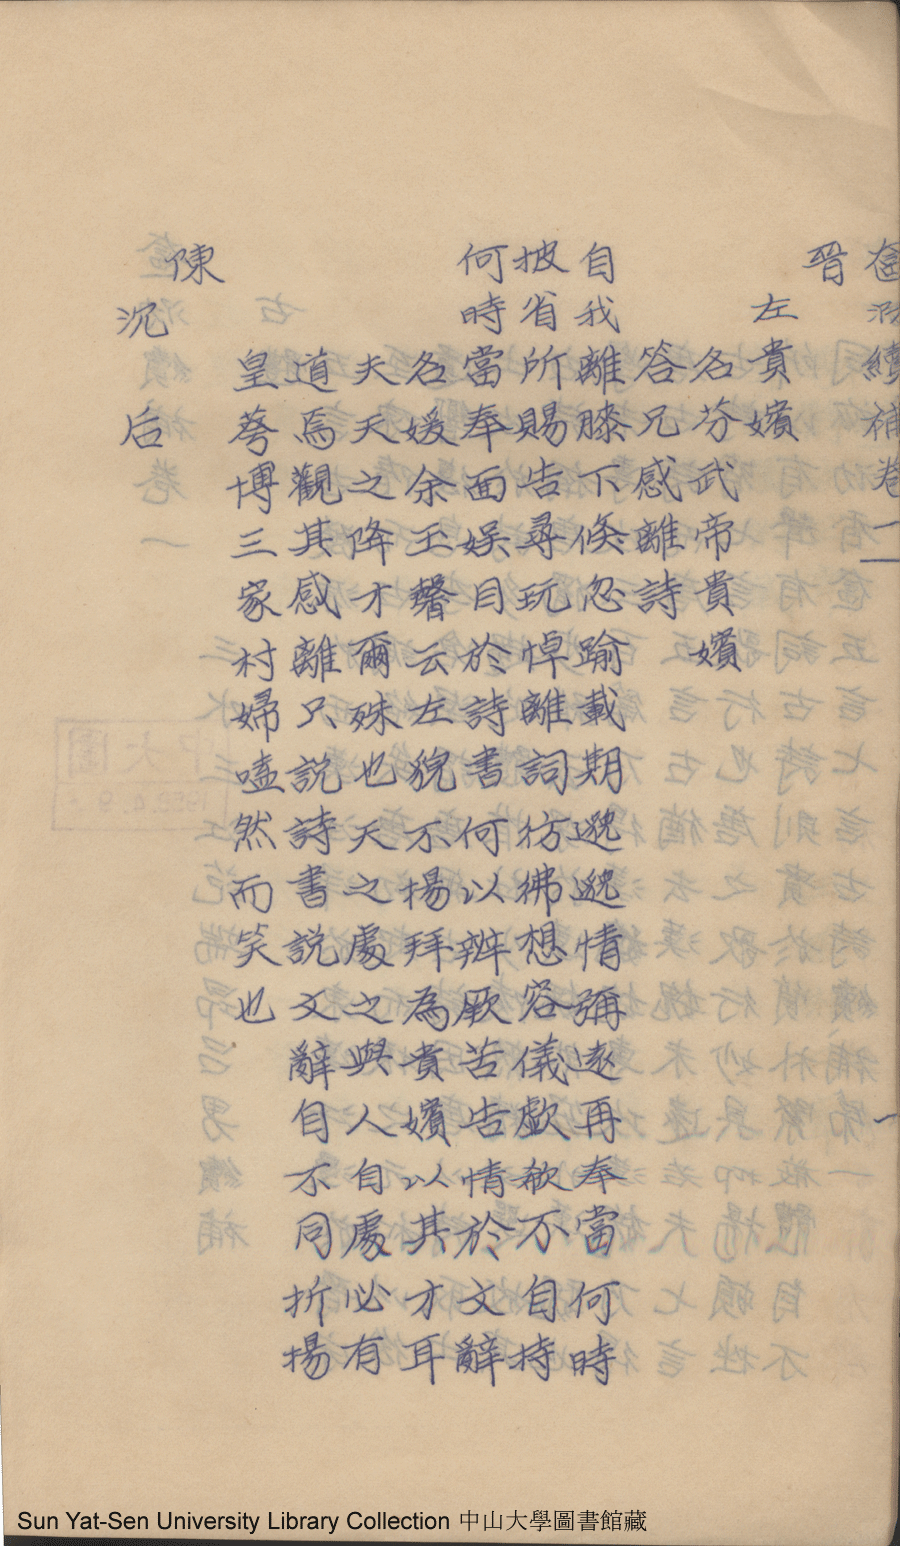 奩泐續補卷一 一
晉
左貴嬪
名芬武帝貴嬪
答兄感離詩
自我離膝下倏忽踰載期邈邈情彌遠再奉當何時
披省所賜告尋玩悼離詞彷彿想容儀歔欷不自持
何時當奉面娛目於詩書何以辨厥苦告情於文辭
名媛余玉馨云左貌不揚拜為貴嬪以其才耳
夫天之降才爾殊也天之處之與人自處必有
道焉觀其感離只說詩書說文辭自不同折楊
皇荂博三家村婦嗑然而笑也
陳
沉后
Sun Yat-Sen University Library Collection 中山大學圖書館藏